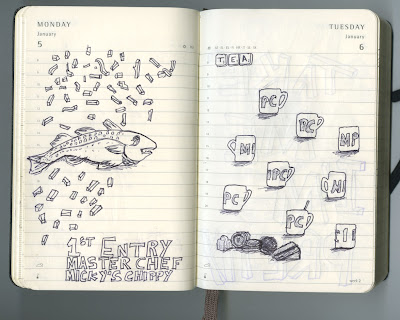 MONDAY
January
5
1ST ENTRY
MASTER CHEF
MICKY'S CHIPPY
TUESDAY
January
6
TEA
PC
PC
MI
MP
IPC
MI
PC
PC